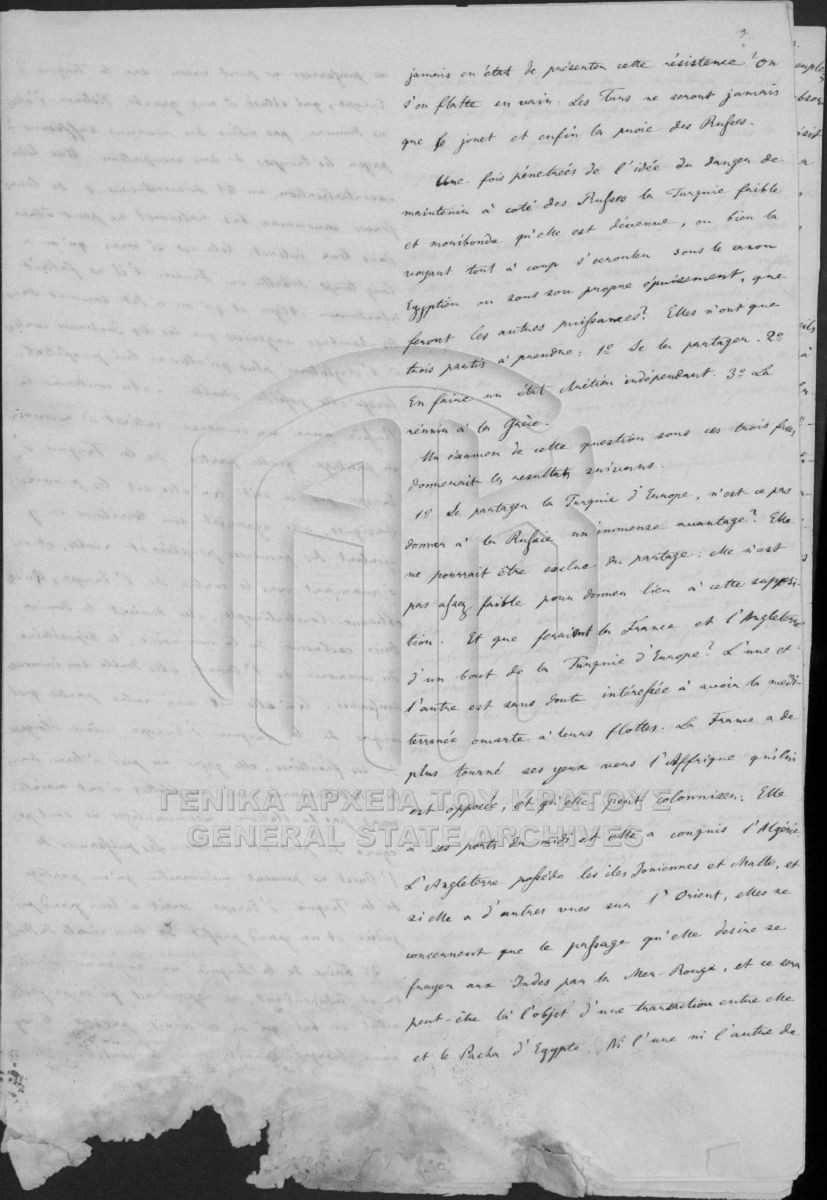 jamais en état de présenter cette résistence? On
s'en flatte en vain. Les Turcs ne seront jamais
que le jouet et enfin la proie des Russes.
Une fois pénetrées de l'idée du danger de
maintenir à coté des Russes la Turquie faible
et moribonde qu'elle est dévenue, ou bien la
voyant tout à coup s'ecrouler sous le canon
Egyptien ou sous son propre épuisement, que
feront les autres puissances? Elles n'ont que
trois partis à prendre: 1º Se la partager. 2º
En faire un état chrétien indépendant. 3º La
réunir à la Grèce.
Un examen de cette question sous ces trois faces
donnerait les resultats suivans.
1º Se partager la Turquie d'Europe, n'est-ce pas
donner à la Russie un immense avantage? Elle
ne pourrait être exclue du partage: elle n'est
pas assez faible pour donner lieu à cette supposi-
tion. Et que feraient la France et l'Angleterre
d'un bout de la Turquie d'Europe? L'une et
l'autre est sans doute intéressée à avoir la médi-
terranée ouverte à leurs flottes. La France a de
plus tourné ses yeux vers l'Affrique qu'elui
est opposée, et qu'elle peut colonniser. Elle
a ses ports du midi et elle a conquis l'Algérie
L'Angleterre possède les iles Joniennes et Malte, et
si elle a d'autres vues sur l'Orient, elles ne
concernent que le passage qu'elle desire se
frayer aux Indes par la Mer-Rouge, et ce sera
peut-être là l'objet d'une transaction entre elle
et le Pacha d'Egypte. Ni l'une ni l'autre de
ΓΕΝΙΚΑ ΑΡΧΕΙΑ ΤΟΥ ΚΡΑΤΟΥΣ
GENERAL STATE ARCHIVES